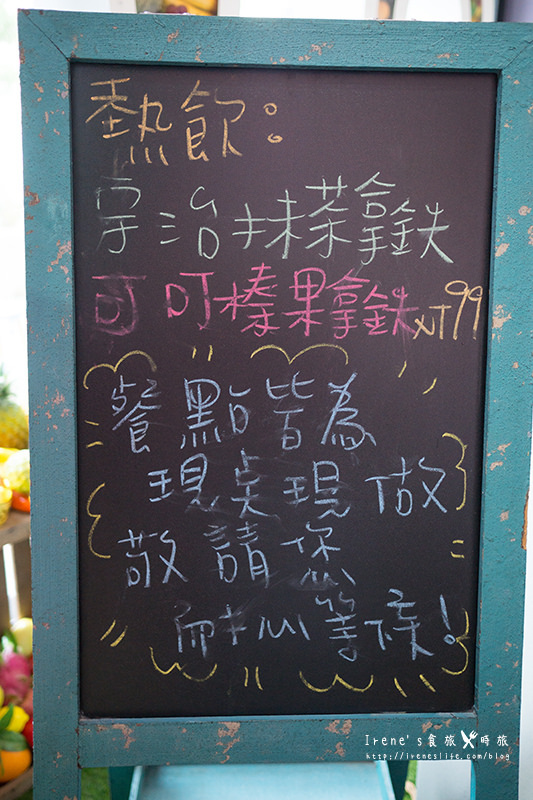 熱飲:
宇治抹茶拿鐵
可可榛果拿鐵 NT99
餐點皆為
現桌現做
敬請您
耐心等候!
Irene's 食旅 時旅
http://ireneslife.com/blog